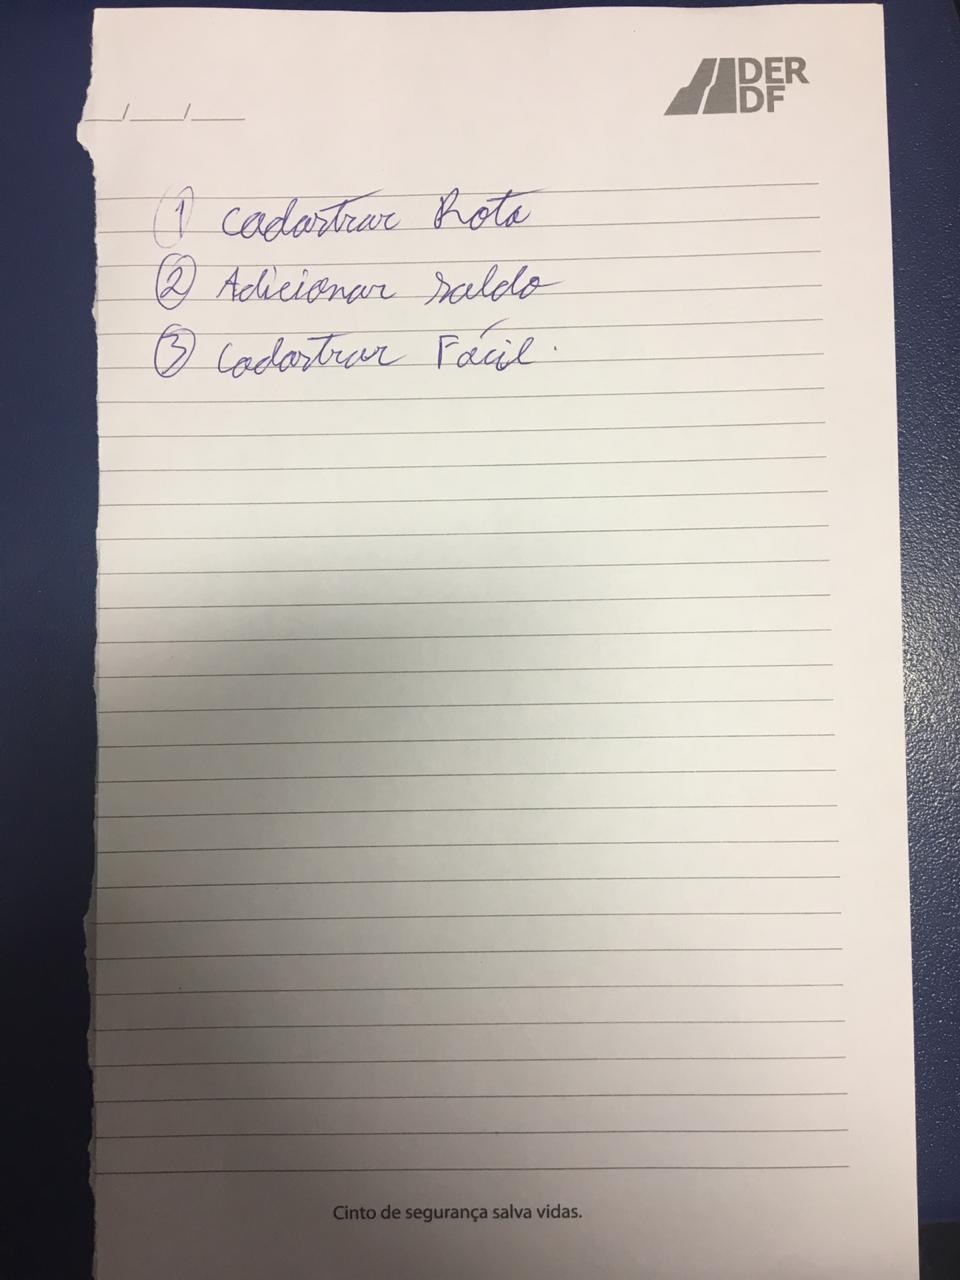 DER
DF
__/____/____
① Cadastrar Rota
② Adicionar saldo
③ Cadastrar Fácil.
Cinto de segurança salva vidas.